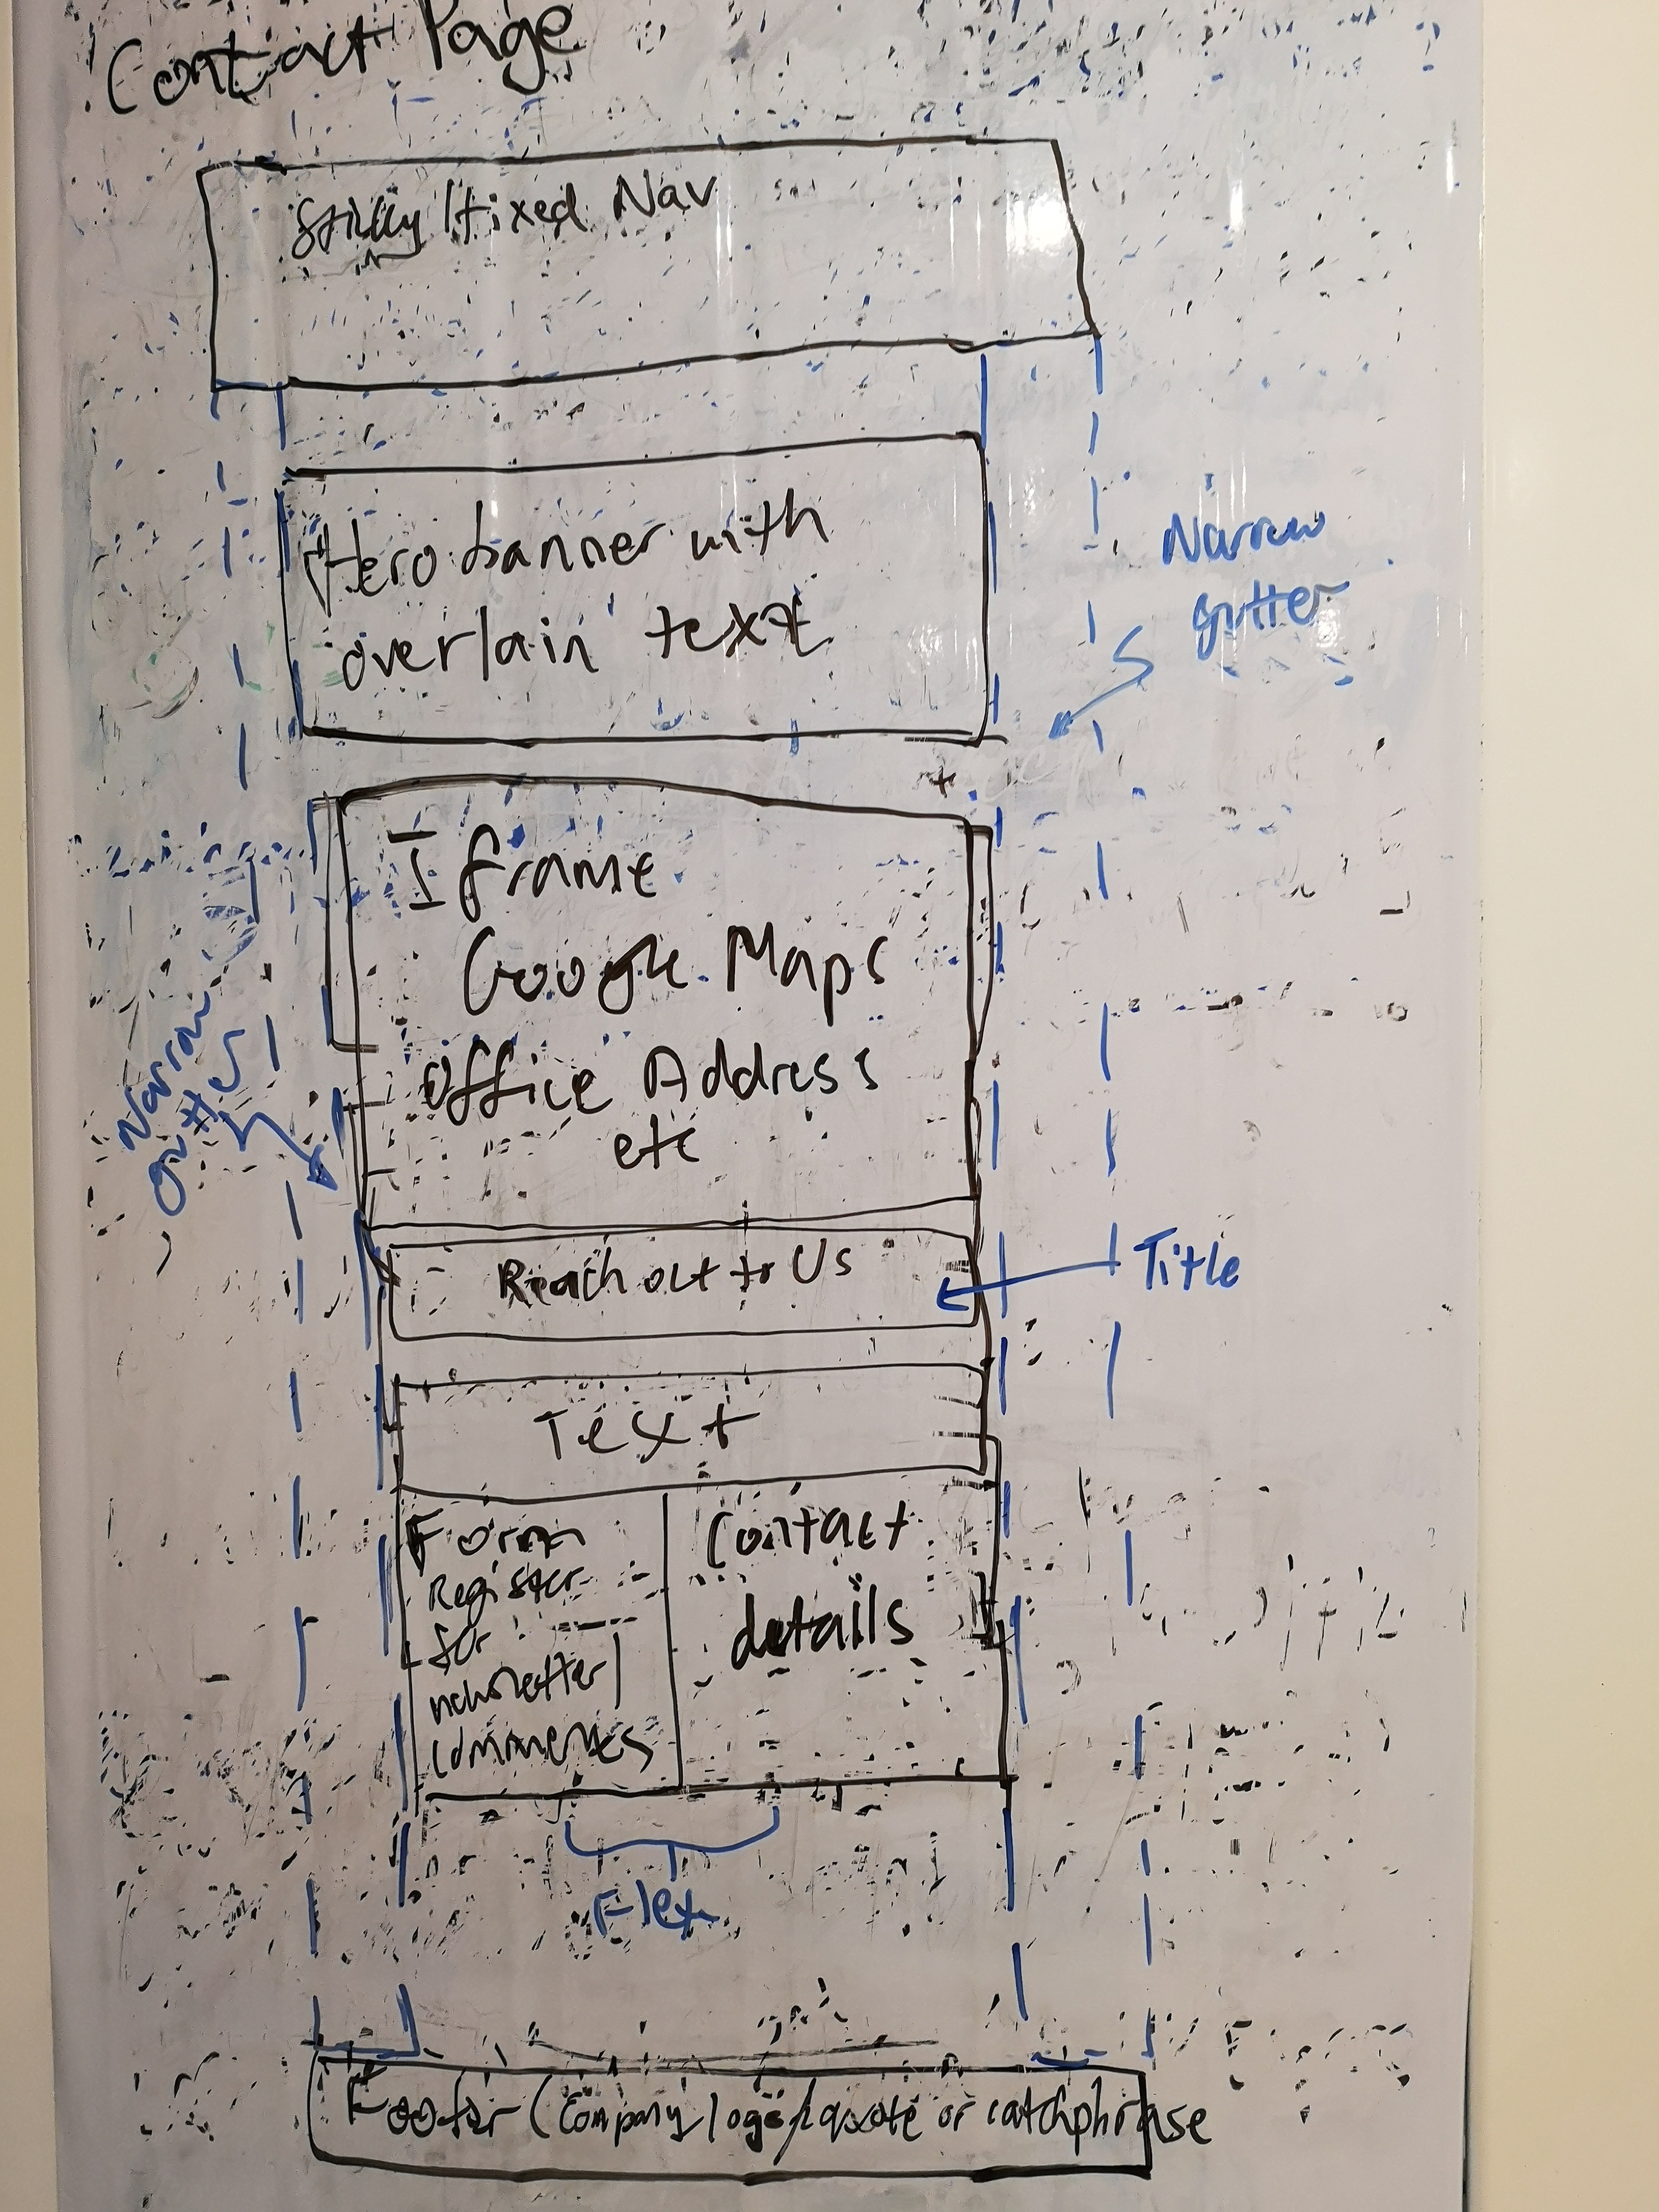 Contact Page
Sticky/fixed Nav
Hero banner with
overlain text
Narrow
gutter
I frame
Google Maps
Office Address
etc
Narrow
gutter
Reach out to Us
Title
Text
Form
Register
for
newsletter/
comments
Contact
details
Flex
Footer (Company logo/quote or catchphrase